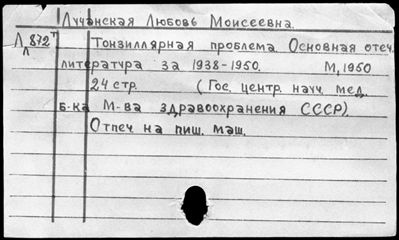 Лучанская Любовь Моисеевна.
Л 872 т Тонзиллярная проблема. Основная отеч.
л
литература за 1938-1950. М, 1950
24 стр. (Гос. центр. научн. мед.
б-ка М-ва здравоохранения СССР).
Отпеч на пиш. маш.